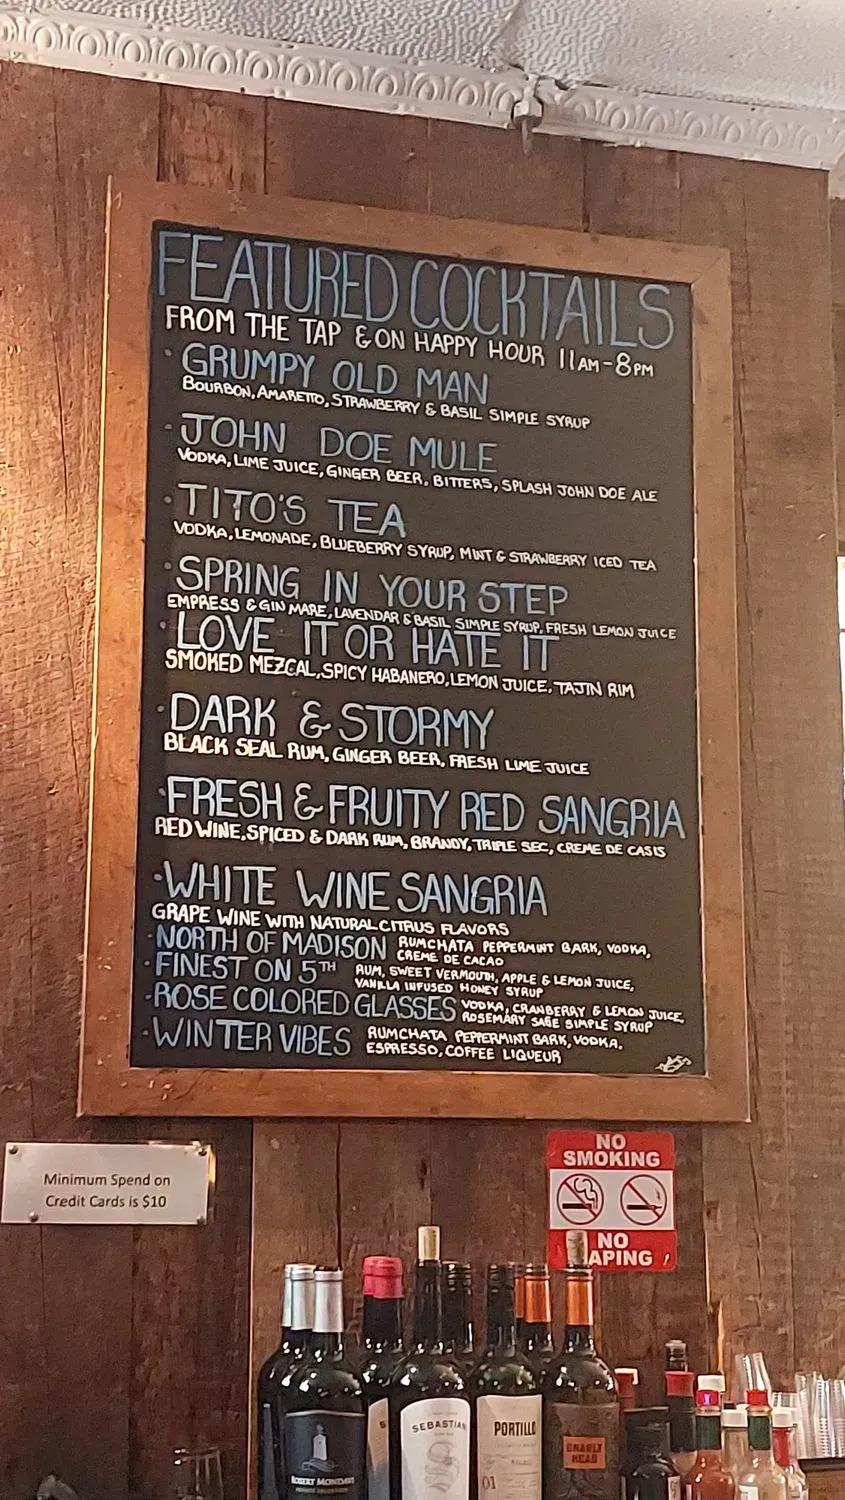 FEATURED COCKTAILS
FROM THE TAP & ON HAPPY HOUR 11AM-8PM
· GRUMPY OLD MAN
BOURBON, AMARETTO, STRAWBERRY & BASIL SIMPLE SYRUP
· JOHN DOE MULE
VODKA, LIME JUICE, GINGER BEER, BITTERS, SPLASH JOHN DOE ALE
· TITO'S TEA
VODKA, LEMONADE, BLUEBERRY SYRUP, MINT & STRAWBERRY ICED TEA
· SPRING IN YOUR STEP
EMPRESS & GIN MARE, LAVENDAR & BASIL SIMPLE SYRUP, FRESH LEMON JUICE
· LOVE IT OR HATE IT
SMOKED MEZCAL, SPICY HABANERO, LEMON JUICE, TAJIN RIM
· DARK & STORMY
BLACK SEAL RUM, GINGER BEER, FRESH LIME JUICE
· FRESH & FRUITY RED SANGRIA
RED WINE, SPICED & DARK RUM, BRANDY, TRIPLE SEC, CREME DE CASIS
· WHITE WINE SANGRIA
GRAPE WINE WITH NATURAL CITRUS FLAVORS
· NORTH OF MADISON RUMCHATA PEPPERMINT BARK, VODKA,
CREME DE CACAO
· FINEST ON 5TH RUM, SWEET VERMOUTH, APPLE & LEMON JUICE,
VANILLA INFUSED HONEY SYRUP
· ROSE COLORED GLASSES VODKA, CRANBERRY & LEMON JUICE,
ROSEMARY SAGE SIMPLE SYRUP
· WINTER VIBES RUMCHATA PEPPERMINT BARK, VODKA,
ESPRESSO, COFFEE LIQUEUR
Minimum Spend on
Credit Cards is $10
NO
SMOKING
NO
APING
ROBERT MONDAVI
SEBASTIAN
PORTILLO
01
GNARLY
HEAD